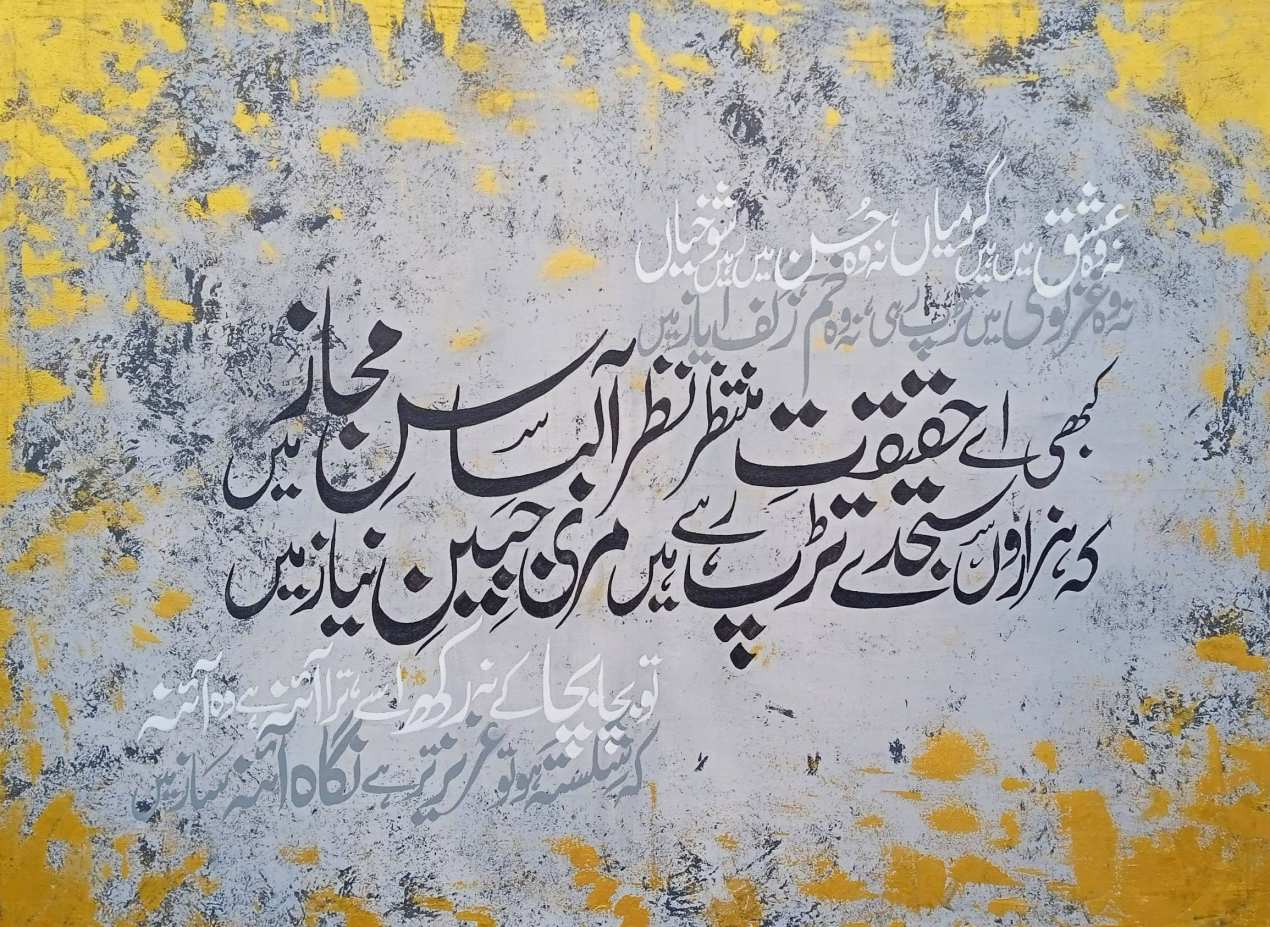 نہ وہ عشق میں رہیں گرمیاں نہ وہ حُسن میں رہیں شوخیاں
نہ وہ غزنوی میں تڑپ رہی نہ وہ خم زلف ایاز میں
کبھی اے حقیقتِ منتظر نظر آ لباسِ مجاز میں
کہ ہزاروں سجدے تڑپ رہے ہیں مری جبینِ نیاز میں
تو بچا بچا کے نہ رکھ اسے ترا آئنہ ہے وہ آئنہ
کہ شکستہ ہو تو عزیز تر ہے نگاہ آئنہ ساز میں